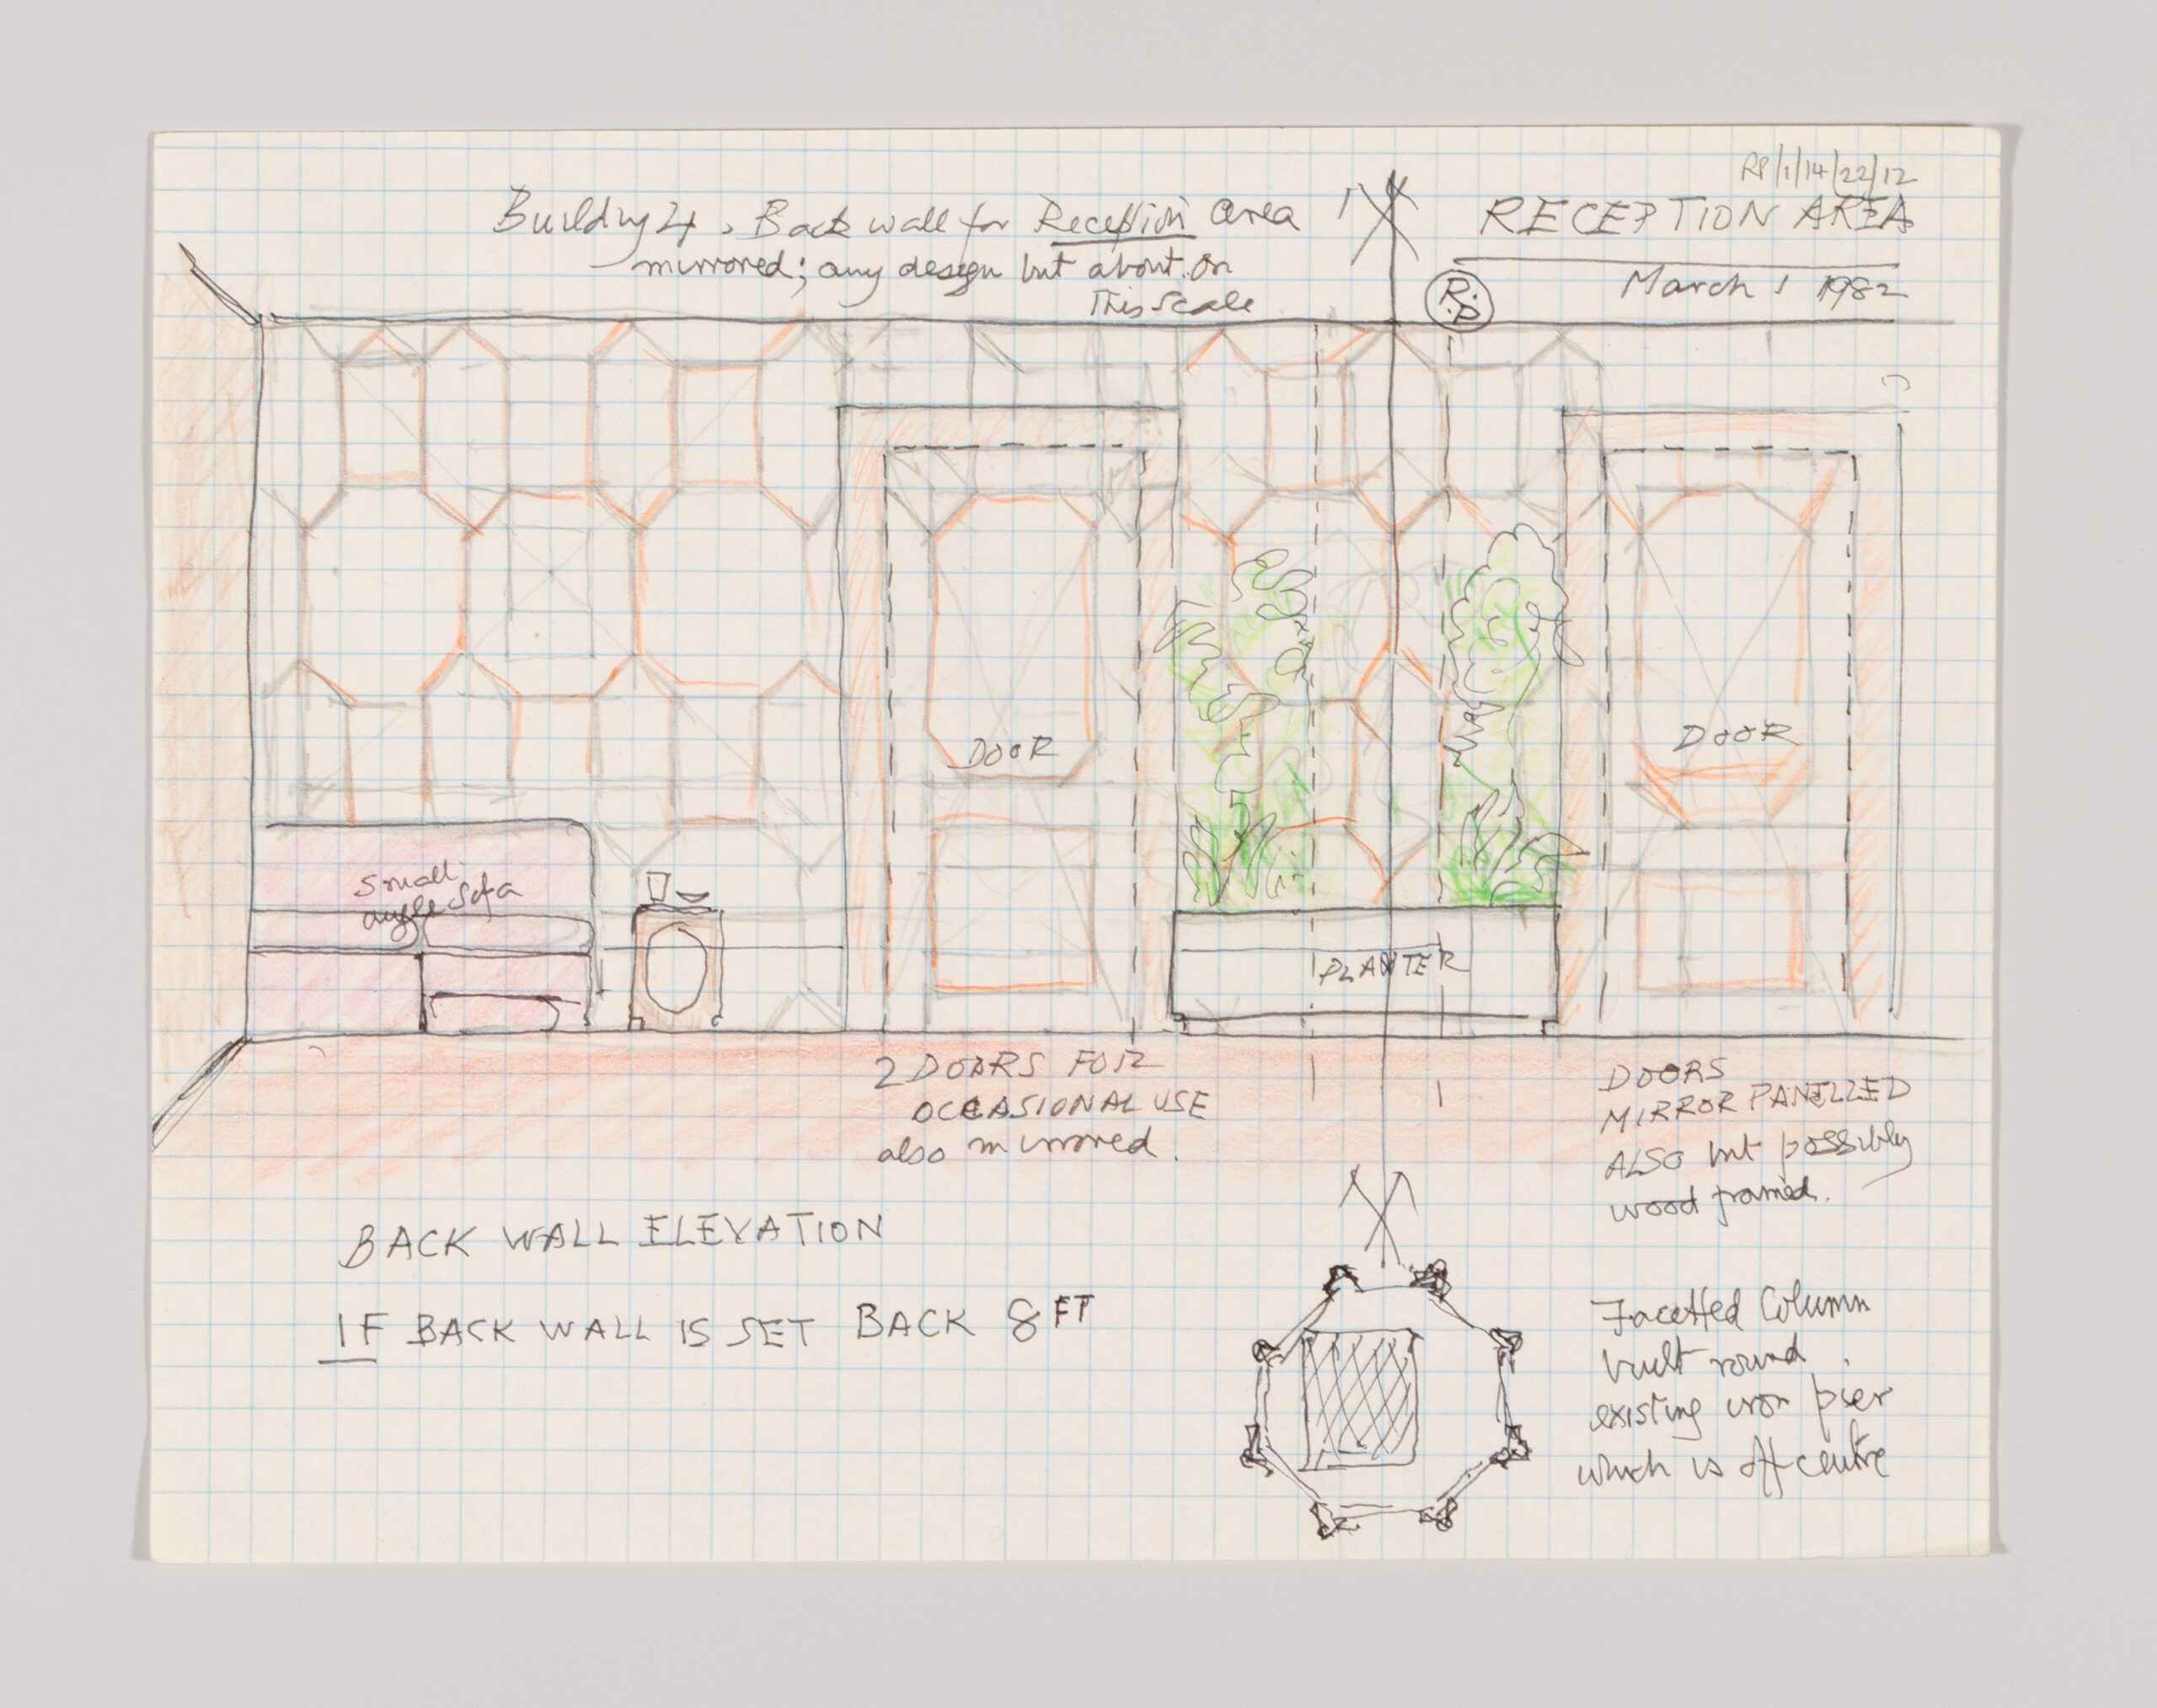 RP/1/14/22/12
Building 4, Back wall for Reception area
mirrored; any design but about on
this scale
RECEPTION AREA
R.P.
March 1 1982
DOOR
DOOR
small
angle sofa
PLANTER
2 DOORS FOR
OCCASIONAL USE
also mirrored.
DOORS
MIRROR PANELLED
ALSO but possibly
wood framed.
BACK WALL ELEVATION
IF BACK WALL IS SET BACK 8 FT
Facetted Column
built round
existing iron pier
which is off centre